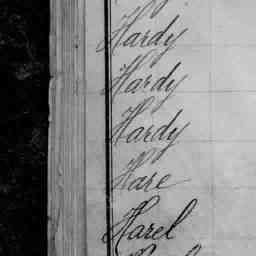 Hardy
Hardy
Hardy
Hare
Harel